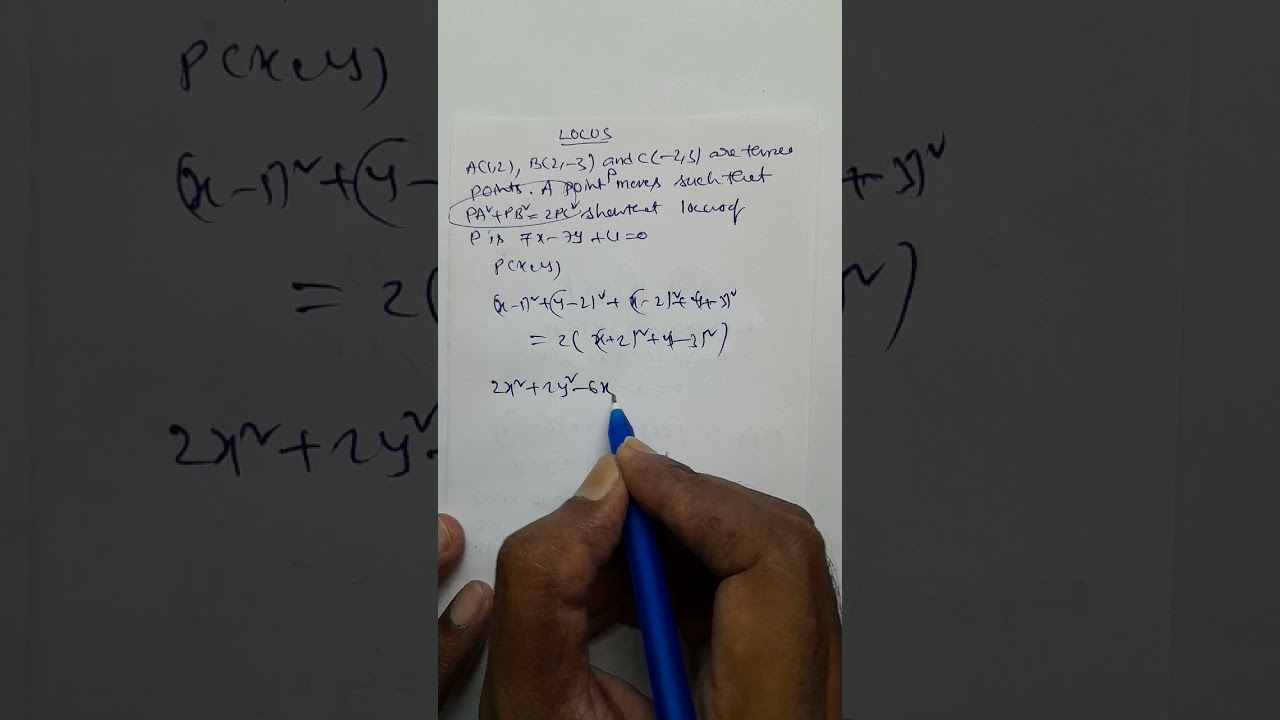 LOCUS
A(1,2), B(2,-3) and C(-2,3) are three
points. A point P moves such that
PA²+PB²=2PC² show that locus of
P is 7x-7y+4=0
P(x,y)
(x-1)²+(y-2)²+(x-2)²+(y+3)²
=2((x+2)²+(y-3)²)
2x²+2y²-6x